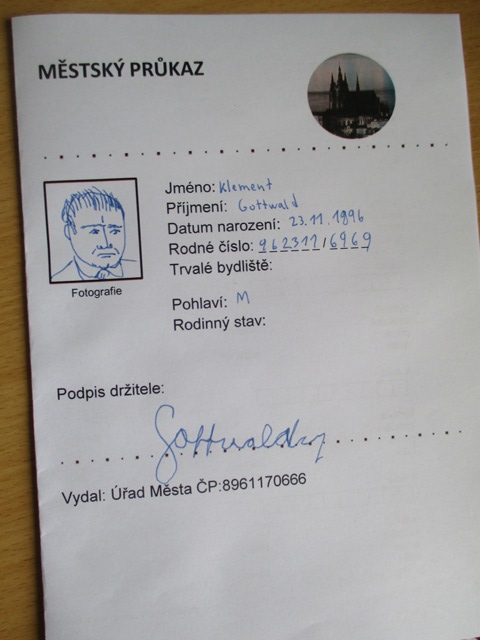 MĚSTSKÝ PRŮKAZ
Jméno: Klement
Příjmení: Gottwald
Datum narození: 23.11.1896
Rodné číslo: 962311/6969
Trvalé bydliště:
Fotografie
Pohlaví: M
Rodinný stav:
Podpis držitele:
Gottwaldky
Vydal: Úřad Města ČP:8961170666